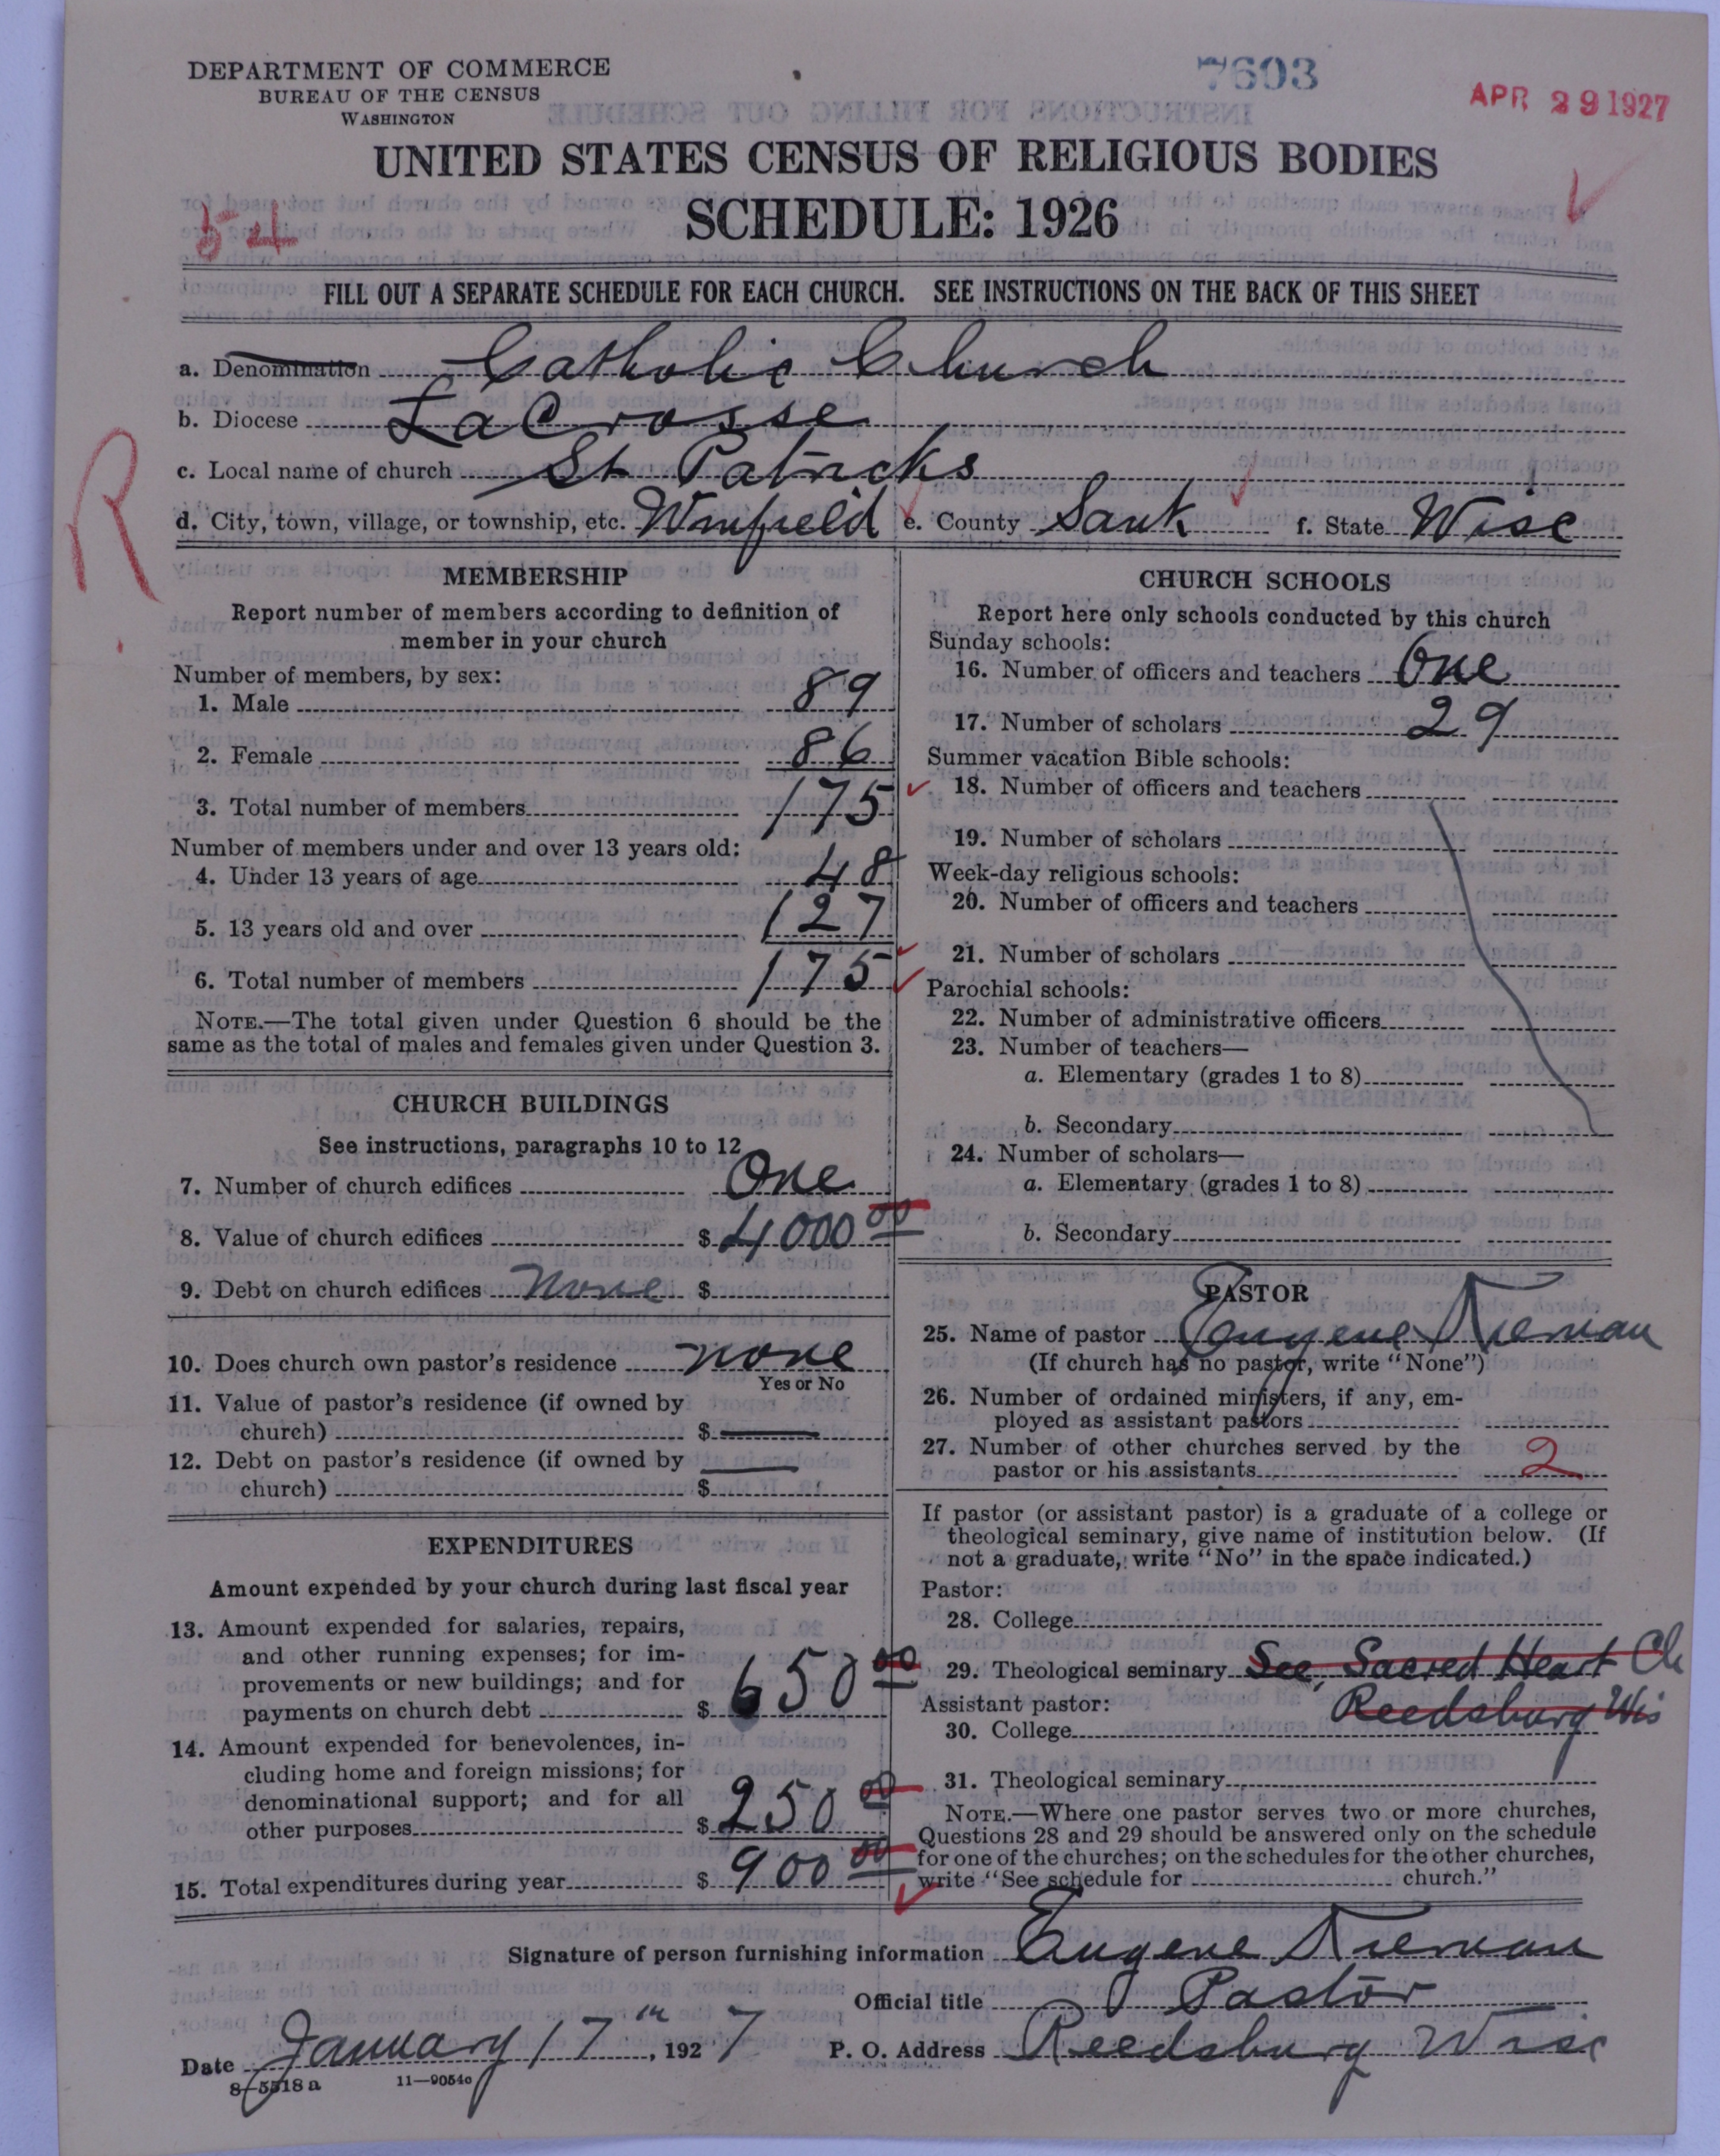 DEPARTMENT OF COMMERCE
BUREAU OF THE CENSUS
WASHINGTON
7603
APR 29 1927
UNITED STATES CENSUS OF RELIGIOUS BODIES
SCHEDULE: 1926
54
FILL OUT A SEPARATE SCHEDULE FOR EACH CHURCH. SEE INSTRUCTIONS ON THE BACK OF THIS SHEET
a. Denomination Catholic Church
b. Diocese LaCrosse
c. Local name of church St Patricks
d. City, town, village, or township, etc. Winfield e. County Sauk f. State Wisc
R
MEMBERSHIP
Report number of members according to definition of
member in your church
Number of members, by sex:
1. Male 89
2. Female 86
3. Total number of members 175
Number of members under and over 13 years old:
4. Under 13 years of age 48
5. 13 years old and over 127
6. Total number of members 175
NOTE.—The total given under Question 6 should be the
same as the total of males and females given under Question 3.
CHURCH BUILDINGS
See instructions, paragraphs 10 to 12
7. Number of church edifices One
8. Value of church edifices $ 4000 00
9. Debt on church edifices none $
10. Does church own pastor's residence none
Yes or No
11. Value of pastor's residence (if owned by
church) $
12. Debt on pastor's residence (if owned by
church) $
EXPENDITURES
Amount expended by your church during last fiscal year
13. Amount expended for salaries, repairs,
and other running expenses; for im-
provements or new buildings; and for
payments on church debt $ 650 00
14. Amount expended for benevolences, in-
cluding home and foreign missions; for
denominational support; and for all
other purposes $ 250 00
15. Total expenditures during year $ 900 00
CHURCH SCHOOLS
Report here only schools conducted by this church
Sunday schools:
16. Number of officers and teachers One
17. Number of scholars 29
Summer vacation Bible schools:
18. Number of officers and teachers
19. Number of scholars
Week-day religious schools:
20. Number of officers and teachers
21. Number of scholars
Parochial schools:
22. Number of administrative officers
23. Number of teachers—
a. Elementary (grades 1 to 8)
b. Secondary
24. Number of scholars—
a. Elementary (grades 1 to 8)
b. Secondary
PASTOR
25. Name of pastor Eugene Nieman
(If church has no pastor, write "None")
26. Number of ordained ministers, if any, em-
ployed as assistant pastors
27. Number of other churches served by the
pastor or his assistants 2
If pastor (or assistant pastor) is a graduate of a college or
theological seminary, give name of institution below. (If
not a graduate, write "No" in the space indicated.)
Pastor:
28. College
29. Theological seminary See, Sacred Heart Ch
Assistant pastor: Reedsburg Wis
30. College
31. Theological seminary
NOTE.—Where one pastor serves two or more churches,
Questions 28 and 29 should be answered only on the schedule
for one of the churches; on the schedules for the other churches,
write "See schedule for church."
Signature of person furnishing information Eugene Nieman
Official title Pastor
Date January 17th, 1927 P. O. Address Reedsburg Wisc
8—5518a 11—9054o